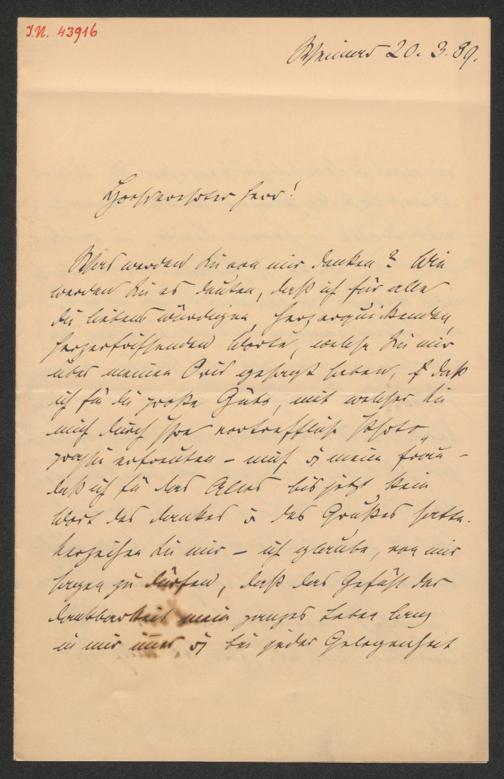 I.N. 43916
Weimar 20. 3. 89.
Hochverehrter Herr!
Was werden Sie von mir denken? Wie
werden Sie es deuten, daß ich für alle
die liebenswürdigen herzerquickenden,
herzerfrischenden Worte, welche Sie mir
über meinen gesagt haben, daß
ich für die große Güte, mit welcher Sie
mich durch Ihre vortreffliche Photo„
graphie erfreuten – mich u meine Frau –
daß ich für das Alles bis jetzt kein
Wort des Dankes u des Grußes hatte.
Verzeihen Sie mir – ich glaube, von mir
sagen zu dürfen, daß das Gefühl der
Dankbarkeit mein ganzes Leben lang
in mir u bei jeder Gelegenheit